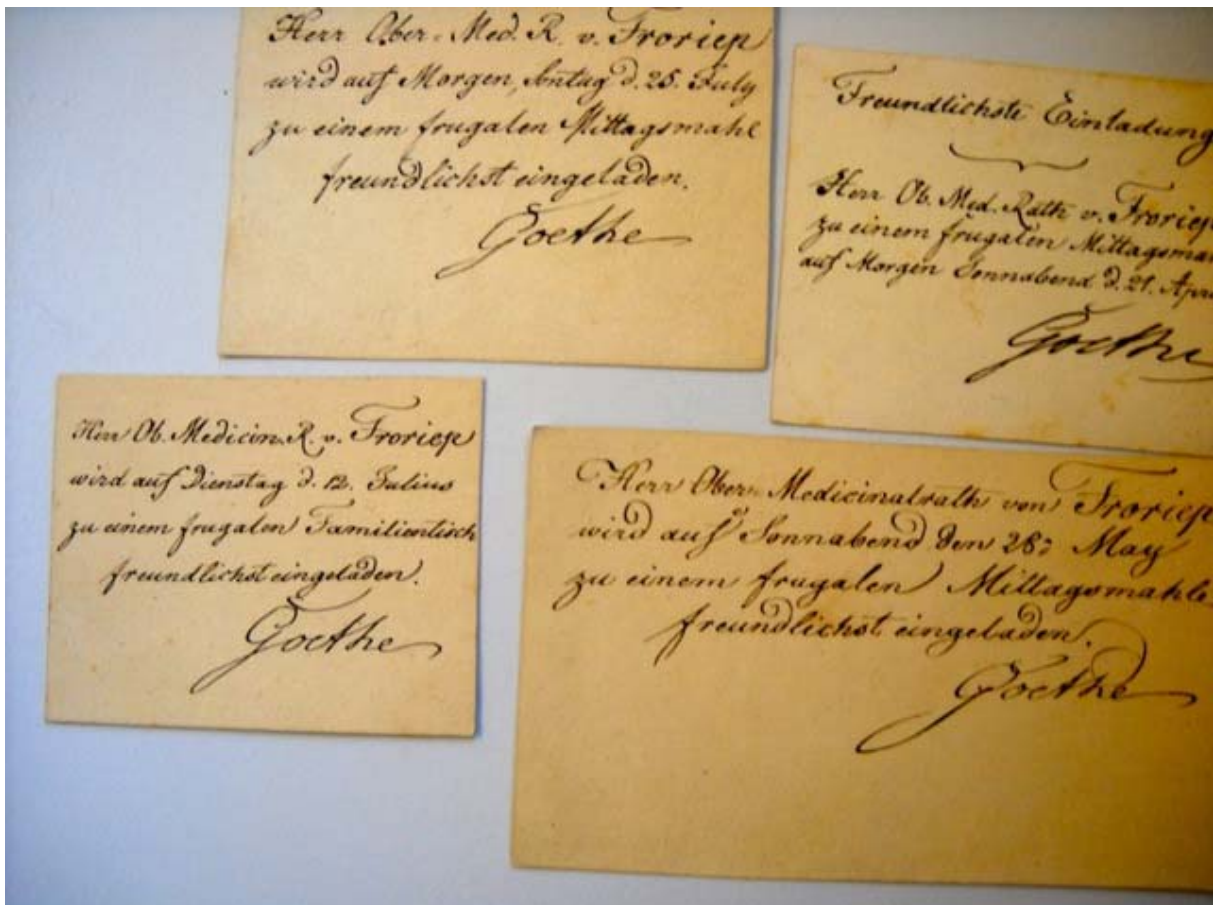 Herr Ober-Med. R. v. Froriep
wird auf Morgen, Sontag d. 25. July
zu einem frugalen Mittagsmahl
freundlichst eingeladen.
Goethe
Freundlichste Einladung
Herr Ob. Med. Rath v. Froriep
zu einem frugalen Mittagsmah
auf Morgen Sonnabend d. 21. Apri
Goethe
Herr Ob. Medicin. R. v. Froriep
wird auf Dienstag d. 12. Julius
zu einem frugalen Familientisch
freundlichst eingeladen.
Goethe
Herr Ober-Medicinalrath von Froriep
wird auf Sonnabend den 28: May
zu einem frugalen Mittagsmahle
freundlichst eingeladen.
Goethe